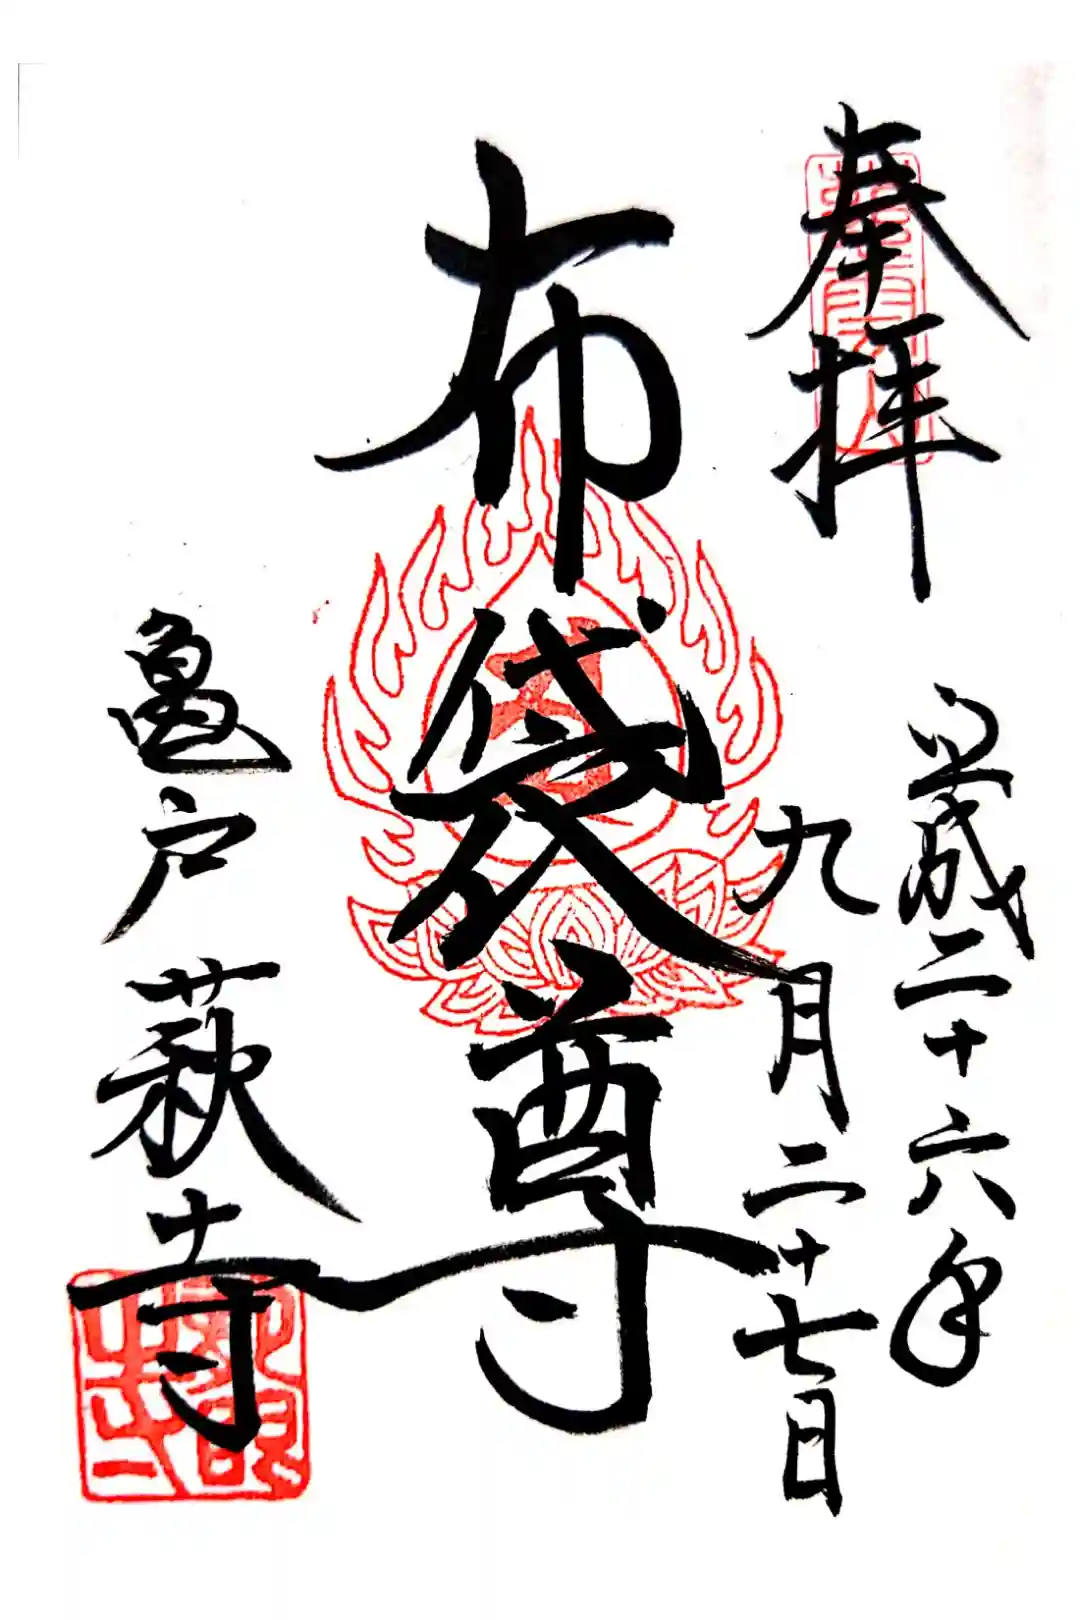 奉拝
平成二十六年
九月二十七日
布袋尊
亀戸萩寺